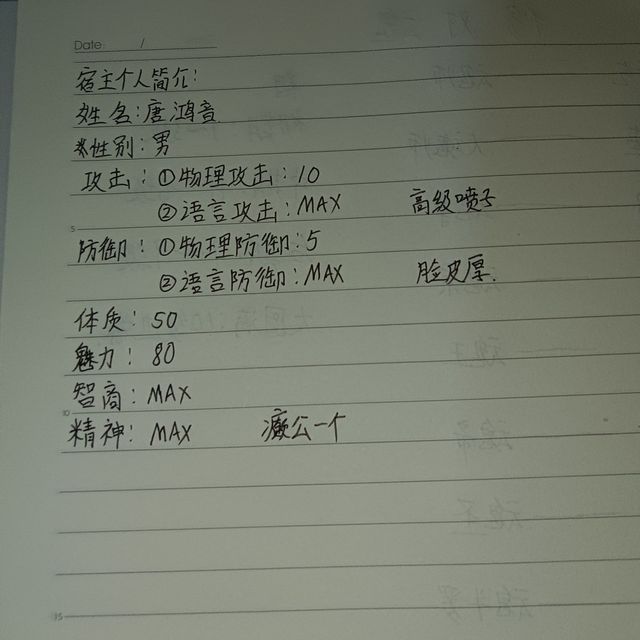 Date: /
宿主个人简介:
姓名:唐鸿音
性别:男
攻击:①物理攻击:10
②语言攻击:MAX 高级喷子
5
防御:①物理防御:5
②语言防御:MAX 脸皮厚.
体质:50
魅力:80
智商:MAX
10
精神:MAX 癫公一个
15